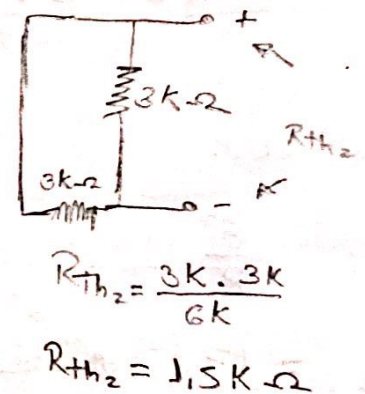 +
3K Ω
Rth₂
3K Ω
-
RTh₂ = 3K . 3K
6K
Rth₂ = 1,5K Ω